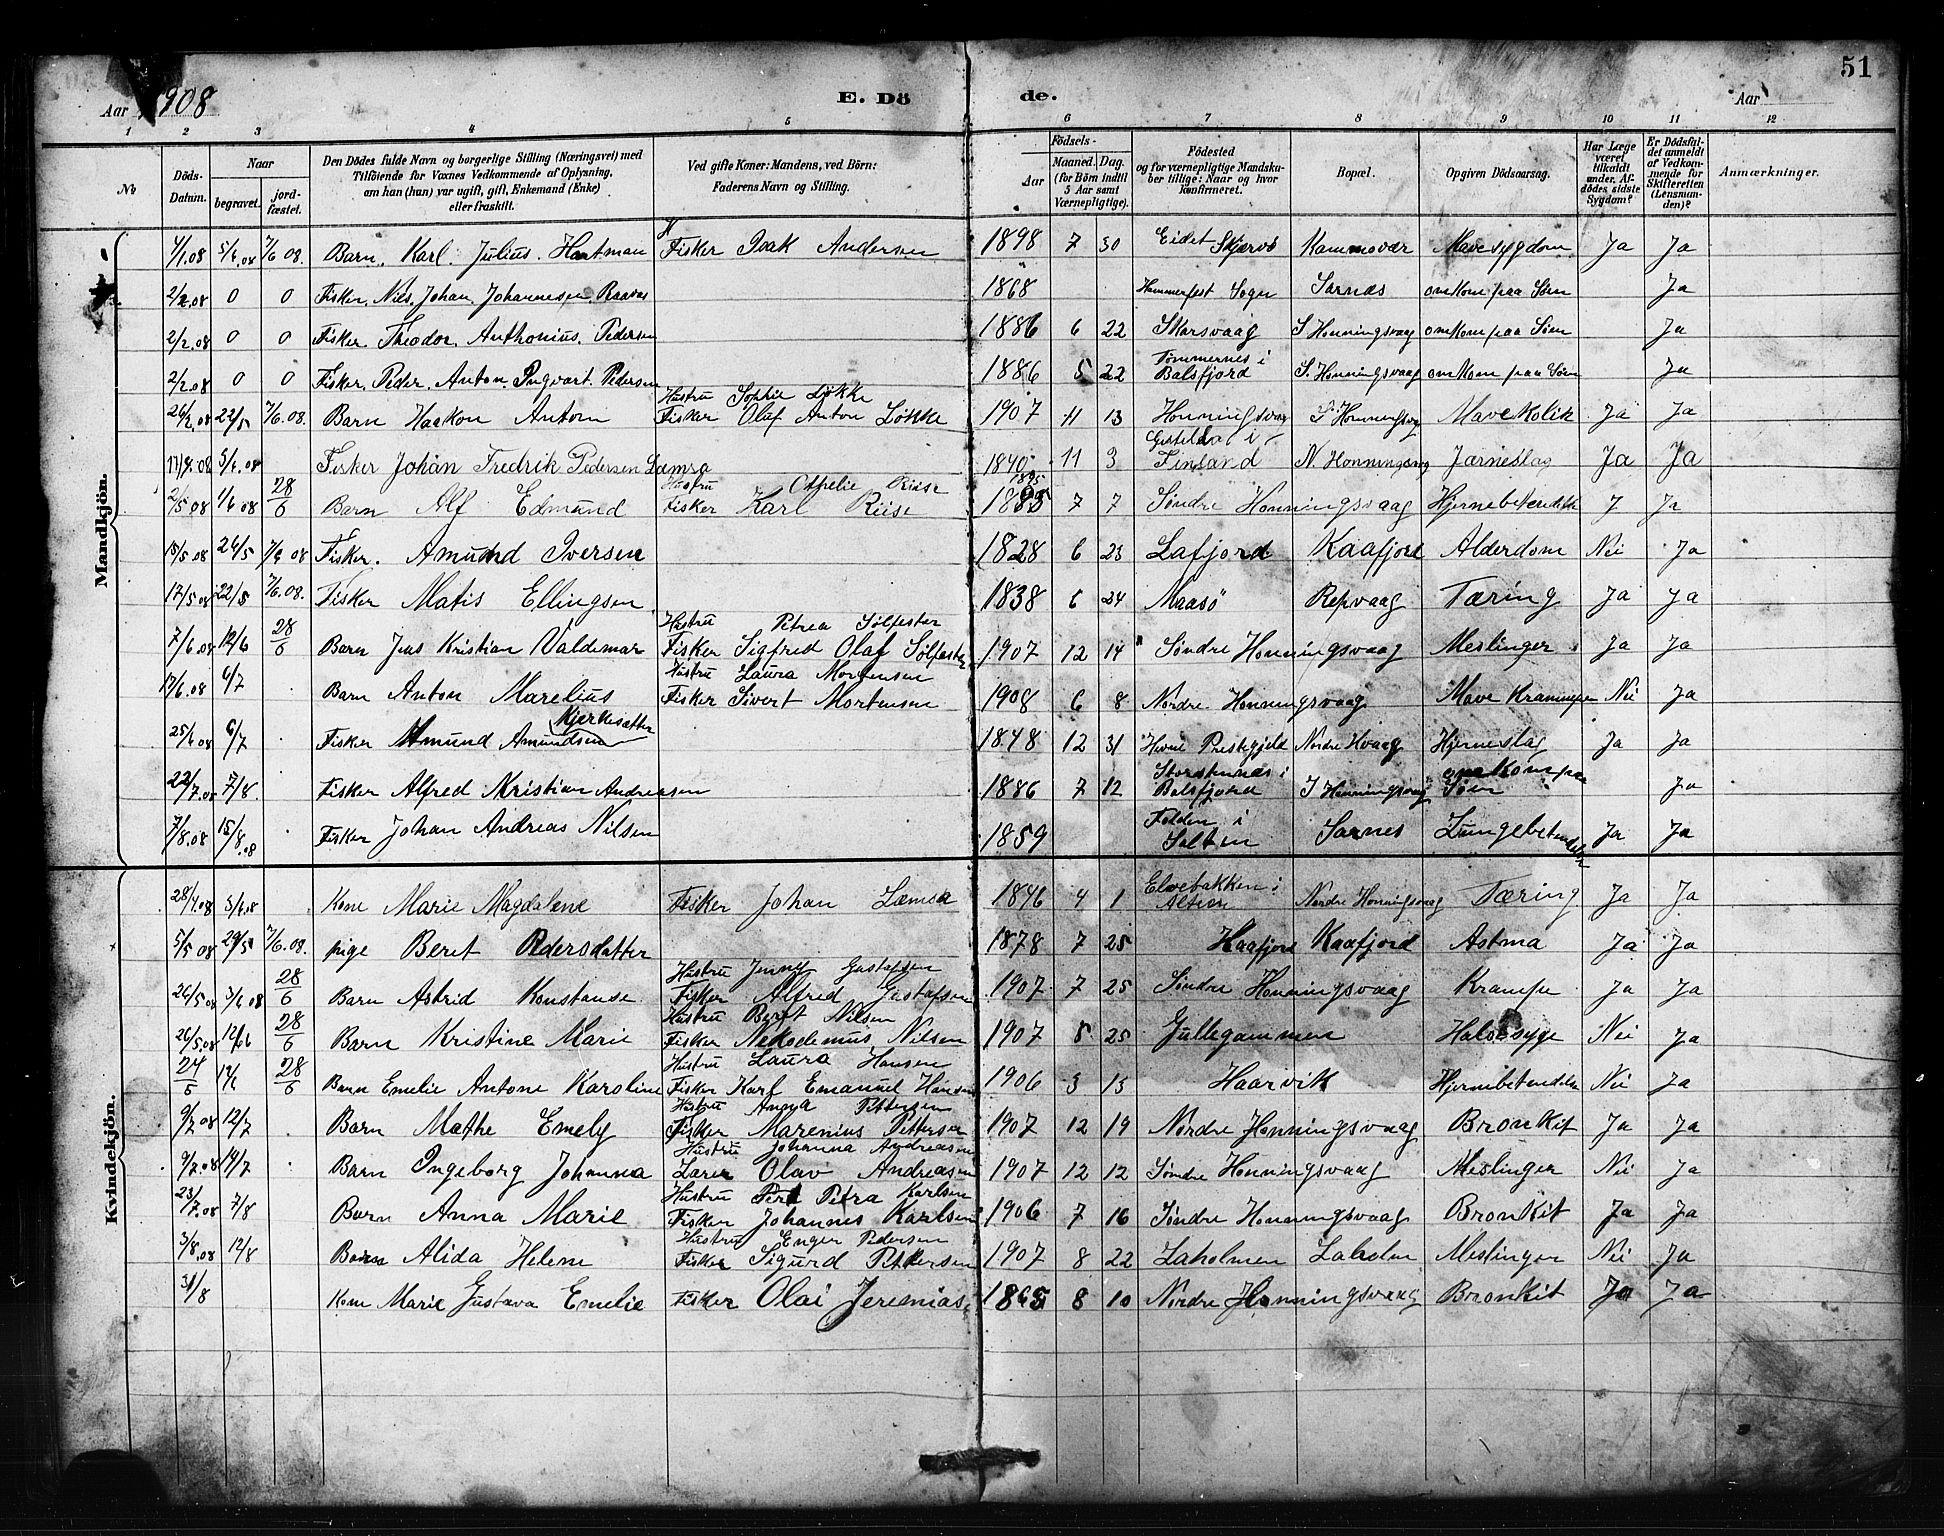 51
Aar 1908 E. Dö de. Aar
1 2 3 4 5 6 7 8 9 10 11 12
No
Döds-Datum.
Naar begravet. jord-fæstet.
Den Dödes fulde Navn og borgerlige Stilling (Næringsvei) med Tilföiende for Voxnes Vedkommende af Oplysning, om han (hun) var ugift, gift, Enkemand (Enke) eller fraskilt.
Ved gifte Koner: Mandens, ved Börn: Faderens Navn og Stilling.
Födsels- Aar Maaned. Dag. (for Börn indtil 5 Aar samt Værnepligtige).
Födested og for værnepligtige Mandsku-ber tillige: Naar og hvor konfirmeret.
Bopæl.
Opgiven Dödsaarsag.
Har Læge været tilkaldt under Af-dödes sidste Sygdom?
Er Dödsfal-det anmeldt af Vedkom-mende for Skifteretten (Lensman-den)?
Anmærkninger.
Mandkjön.
Barn. Karl. Julius. Hartman Fisker Isak Andersen 1898 7 30 Eidet Skjærvö Kammøvær Mavesygdom Ja Ja
2/2.08 0 0 Fisker. Nils. Johan. Johannesen. 1868 Hammerfest Sogn Sarnes omkom paa Søen Ja
2/2.08 0 0 Fisker. Theodor. Anthonius. Pedersen 1886 6 22 Skarsvaag S. Honningsvaag omkom paa Søen Ja
2/2.08 0 0 Fisker. Peder. Anton. Ingvart. Pedersen 1886 5 22 Tømmernes i Balsfjord S. Honningsvaag omkom paa Søen Ja
Hustru Sophie Løkke
26/2.08 22/5 7/6.08. Barn Haakon Antom Fisker Oluf Anton Løkke 1907 11 13 Honningsvaag S. Honningsvaag Mavekolik Ja Ja
Fisker Johan Fredrik Pedersen Læmsa 1840 11 3 Finland N. Honningsvaag Jarneslag Ja Ja
Hustru Othelie Riise
2/5 08 1/6 08 28/6 Barn Alf Edmund Fisker Karl Riise 7 7 Søndre Honningsvaag J Ja
15/5.08 26/5 7/6 08 Fisker. Amund Iversen 1828 6 23 Lafjord Kaafjord Alderdom Nei Ja
17/5 08 22/5 7/6.08. Fisker Matis Ellingsen 1838 6 24 Maasö Repvaag Tæring Ja Ja
Hustru Petrea Sølfester
7/6.08 12/6 28/6 Barn Jens Kristian Valdemar Fisker Sigfred Olaf Sølfester 1907 12 14 Søndre Honningsvaag Meslinger Ja Ja
Hustru Laura Mortensen
17/6.08 6/7 Barn Anton Marelius Fisker Sivert Mortensen 1908 6 8 Nordre Honningsvaag Mave Krampe Nei Ja
25/6 08 6/7 Fisker Amund Amundsen Kjerkesætter 1848 12 31 Hevne Prestegjeld Nordre Hvaag Hjerneslag Ja Ja
22/7.08 7/8. Fisker Alfred Kristian Andreasen 1886 7 12 Storstennes i Balsfjord S Honningsvaag omkom paa Søen Ja
7/8.08 15/8.08 Fisker Johan Andreas Nilsen 1859 Folden i Salten Sarnes Lungebetendelse Ja Ja
Kvindekjön.
28/4.08 Kone Marie Magdalene Fisker Johan Læmsa 1846 4 1 Elvebakken i Alten Nordre Honningsvaag Tæring Ja Ja
5/5 08 29/5 7/6.08. pige Beret Pedersdatter 1878 7 25 Kaafjord Kaafjord Astma Ja Ja
Hustru Jenny Gustafsen
26/5.08 3/6 08 28/6 Barn Astrid Konstanse Fisker Alfred Gustafsen 1907 7 25 Søndre Honningsvaag Krampe Ja Ja
Hustru Beret Nilsen
26/5.08 28/6 Barn Kristine Marie Fisker Nekodemus Nilsen 1907 8 25 Gullegammen Halsesyge Nei Ja
Hustru Laura Hansen
28/6 Barn Emelie Antone Karoline Fisker Karl Emanuel Hansen 1906 3 13 Haarvik Hjernebetendelse Nei Ja
Hustru Anna Pettersen
9/7 08 12/7 Barn Mathe Emely Fisker Marenius Pettersen 1907 12 19 Nordre Honningsvaag Bronkit Ja Ja
Hustru Johanna Andreasen
9/7.08 19/7 Barn Ingeborg Johanna Olav Andreasen 1907 12 12 Søndre Honningsvaag Meslinger Nei Ja
Hustru Petra Karlsen
23/7.08 7/8 Barn Anna Marie Fisker Johannes Karlsen 1906 7 16 Søndre Honningsvaag Bronkit Ja Ja
Hustru Enger Pedersen
3/8.08 12/8 Barn Alida Helene Fisker Sigurd Pettersen 1907 8 22 Laholmen Laholm Meslinger Nei Ja
31/8 Kone Marie Gustava Emelie Fisker Olai Jeremias. 1865 8 10 Nordre Honningsvaag Bronkit Ja Ja